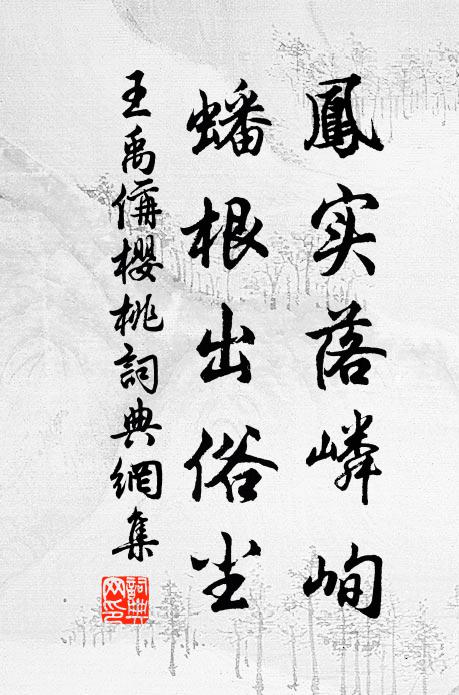 鳳实落嶙峋
蟠根出俗尘
王禹偁櫻桃詞典網集
詞典网印